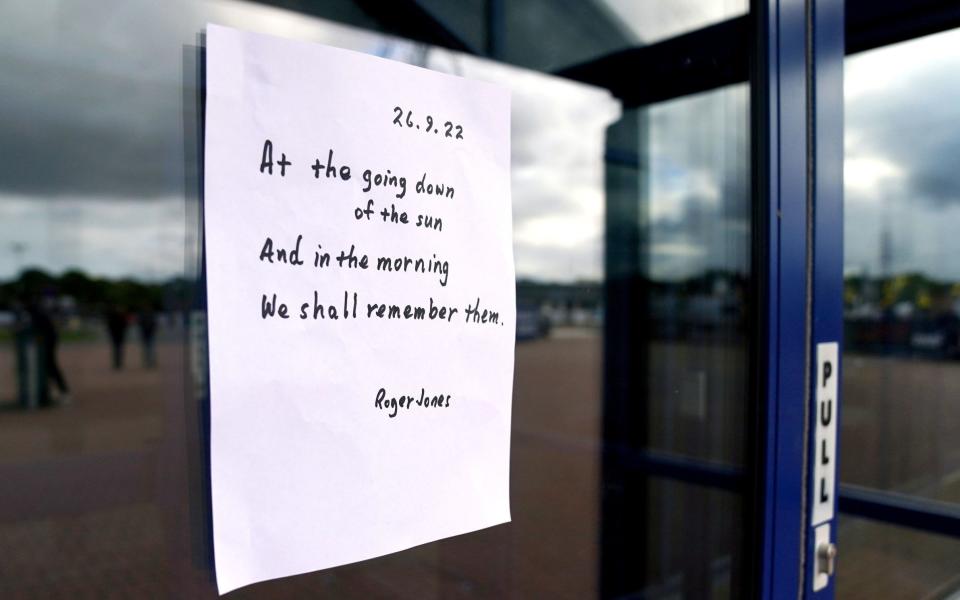 26.9.22
At the going down
of the sun
And in the morning
We shall remember them.
Roger Jones
PULL